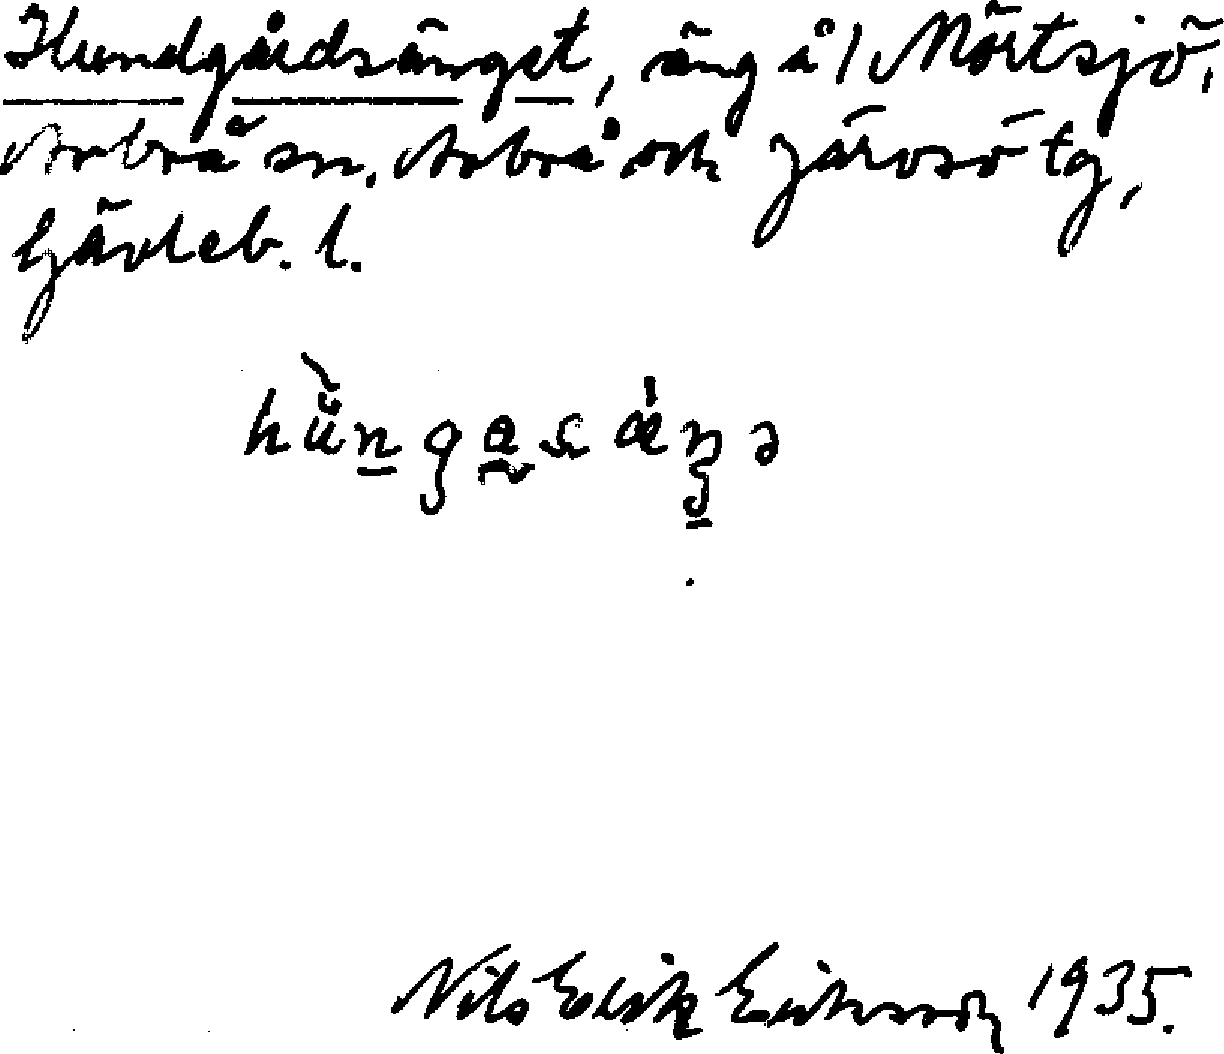 Hundgårdsänget, äng å / Mörtsjö,
Arbrå sn, Arbrå och Järvsö tg,
Gävleb. l.
Nils Erik Eriksson 1935.